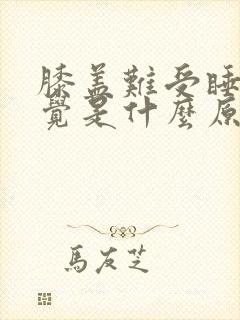 膝盖難受睡
覺是什麼原
馬友芝